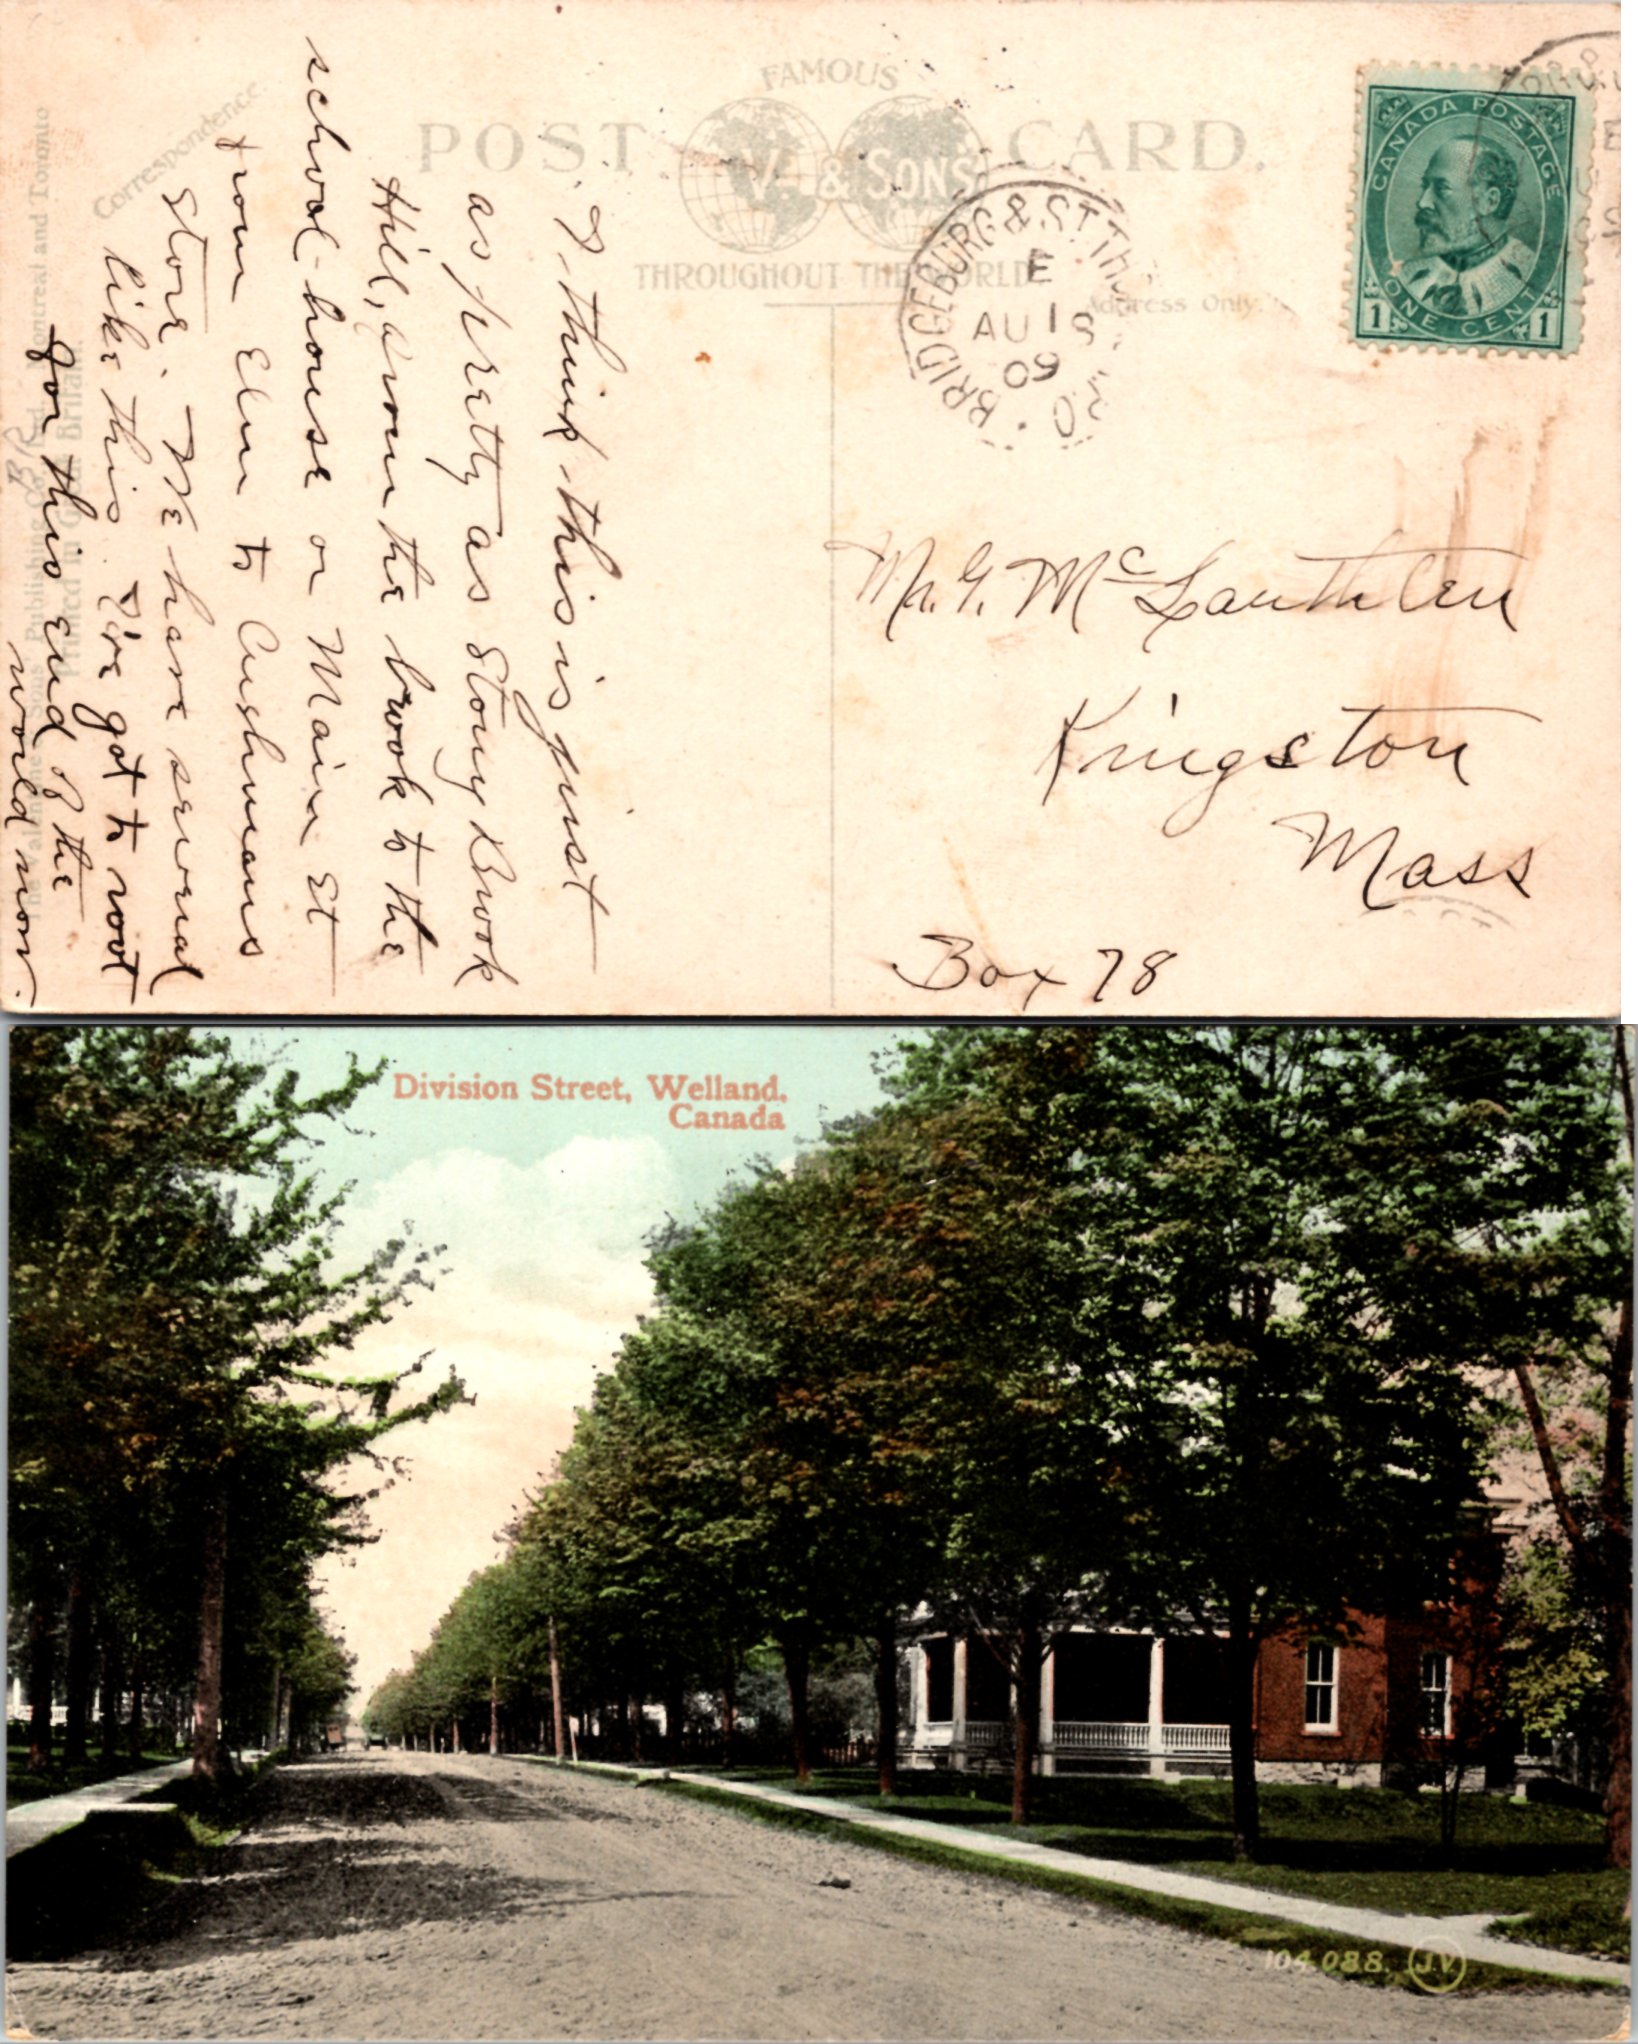 FAMOUS
POST CARD.
V. & SONS
THROUGHOUT THE WORLD
Correspondence.
Address Only.
The Valentine & Sons Publishing Co., Ltd. Montreal and Toronto
Printed in Great Britain.
CANADA POSTAGE
ONE CENT
1 1
BRIDGEBURG & ST. THO
E
AU 1
09
I think this is just
as pretty as Stony Brook
Hill, from the brook to the
school-house or Main St
from Elm to Cushmans
store. We have several
like this. I've got to root
for this end of the
world now.
Mr. G. Mc
Kingston
Mass
Box 78
Division Street, Welland,
Canada
104,088. J.V.